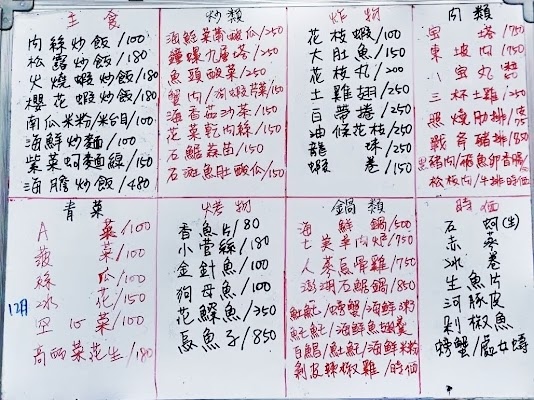 主食
肉絲炒飯/100
松露炒飯/180
火燒蝦炒飯/180
櫻花蝦炒飯/180
南瓜米粉/米台目/100
海鮮炒麵/100
紫菜蚵麵線/150
海膽炒飯/480
炒類
海鮮菜蒲酸瓜/250
鐘螺九層塔/250
魚頭酸菜/250
蟹肉
海香茄沙茶/150
花菜乾肉絲/150
石鱔蒜苗/150
石斑魚肚酸瓜/150
炸物
花枝蝦/100
大肚魚/150
花枝丸/200
土雞翅/250
百帶捲/250
油條花枝/250
龍球/250
蝦卷/150
肉類
宝塔/750
東坡肉/750
宝丸
三杯土雞/250
照燒肋排
戰斧豬排/850
松板肉/牛排時価
青菜
A菜/100
菠菜/100
絲瓜/100
12月
冰花/150
空心菜/100
高麗菜花生/180
烤物
香魚片/80
小管絲/180
金針魚/100
狗母魚/100
花鰹魚/250
烏魚子/850
鍋類
海鮮鍋/500
七美羊肉爐/750
人蔘烏骨雞/750
澎湖石鱔鍋/850
魠魠/螃蟹/海鮮粥
魠魠/海鮮魚翅羹
白鯧/魠魠/海鮮米粉
剝皮辣椒雞/時価
時価
石蚵(生)
赤蒸
冰卷
生魚片
河豚皮
剁椒魚
螃蟹/處女蟳